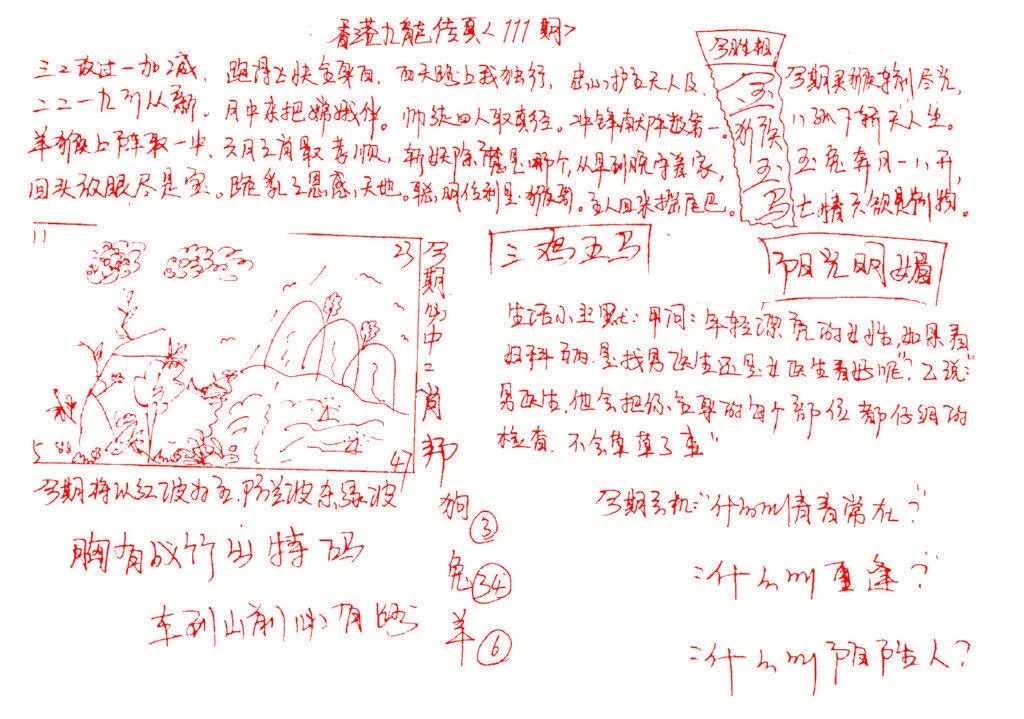 香港九龍传真<111期>
三二放过一加减,跑得飞快全身白,西天路上我独行,忠心护主天人及,
二二一九引从新。月中亲把嫦娥伴。师徒四人取真经。冲锋献阵数第一。
羊猴上阵取一中,六月之首最孝顺,斩妖除魔是哪个,从早到晚守着家,
回头放眼尽是宝。跪乳之恩感天地。聪明伶利是猴哥。主人回来摇尾巴。
今生肖相
主
猴
主
马
今期买猴特别尽兴,
八纵下轿天人生。
玉兔奔月一八开,
七情六欲是动物。
11
23
5
47
今期必中二肖邦
三鸡五马
阳光明媚
生活小幽默:甲问:年轻漂亮的女性,如果看
妇科病是找男医生还是女医生看好呢?"乙说:"
男医生,他会把你全身的每个部位都仔细的
检查,不会草草了事"
今期将以红波为主,防兰波杀绿波
胸有成竹出特码
车到山前必有路
狗③
兔㉞
羊⑥
今期玄机:"什么叫青春常在?"
:什么叫重逢?"
:什么叫阴阳人?